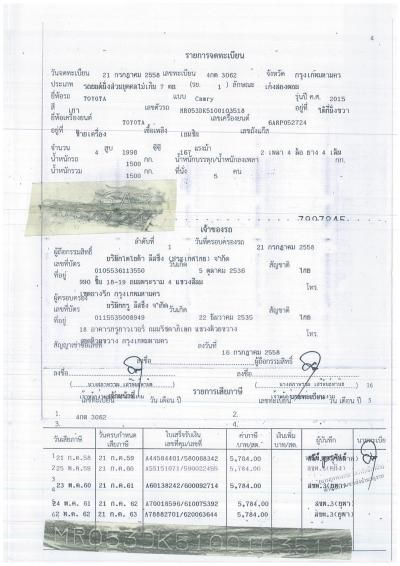 4
รายการจดทะเบียน
วันจดทะเบียน 21 กรกฎาคม 2558 เลขทะเบียน 4กต 3062 จังหวัด กรุงเทพมหานคร
ประเภท รถยนต์นั่งส่วนบุคคลไม่เกิน 7 คน (รย. 1 ) ลักษณะ เก๋งสองตอน
ยี่ห้อรถ TOYOTA แบบ Camry รุ่นปี ค.ศ. 2015
สี เทา เลขตัวรถ MR053DK5100103518 อยู่ที่
ยี่ห้อเครื่องยนต์ TOYOTA เลขเครื่องยนต์ 6ARP052724
อยู่ที่ ซ้ายเครื่อง เชื้อเพลิง เบนซิน เลขถังแก๊ส
จำนวน 4 สูบ 1998 ซีซี 167 แรงม้า 2 เพลา 4 ล้อ ยาง 4 เส้น
น้ำหนักรถ 1500 กก. น้ำหนักบรรทุก/น้ำหนักลงเพลา กก.
น้ำหนักรวม 1500 กก. ที่นั่ง 5 คน
เจ้าของรถ
ลำดับที่ 1 วันที่ครอบครองรถ 21 กรกฎาคม 2558
ผู้ถือกรรมสิทธิ์ บริษัทโตโยต้า ลีสซิ่ง (ประเทศไทย) จำกัด
เลขที่บัตร 0105536113550 วันเกิด 5 ตุลาคม 2536 สัญชาติ ไทย
ที่อยู่ 990 ชั้น 18-19 ถนนพระราม 4 แขวงสีลม โทร.
เขตบางรัก กรุงเทพมหานคร
ผู้ครอบครอง
เลขที่บัตร 0115535008949 วันเกิด 22 ธันวาคม 2535 สัญชาติ ไทย
ที่อยู่ 18 อาคารทรูทาวเวอร์ ถนนรัชดาภิเษก แขวงห้วยขวาง โทร.
เขตห้วยขวาง กรุงเทพมหานคร
สัญญาเช่าซื้อเลขที่ ลงวันที่ 16 กรกฎาคม 2558
ลงชื่อ ผู้ถือกรรมสิทธิ์
ลงชื่อ ลงชื่อ
รายการเสียภาษี 16
วัน เดือน ปี เลขทะเบียน วัน เดือน ปี 5
1. 4กต 3062 2.
3. 4.
วันเสียภาษี วันครบกำหนดเสียภาษี ใบเสร็จรับเงิน เลขที่คุม/เลขที่ ค่าภาษี บาท/สต. เงินเพิ่ม บาท/สต. ผู้บันทึก นายทะเบียน
21 ก.ค.58 21 ก.ค.59 A44584401/580068342 5,784.00
25 พ.ค.59 21 ก.ค.60 A55151071/590022455 5,784.00
23 พ.ค.60 21 ก.ค.61 A60138242/600092714 5,784.00
24 พ.ค.61 21 ก.ค. 62 A70018596/610075392 5,784.00
62 พ.ค.62 21 ก.ค. 63 A78882701/620063644 5,784.00